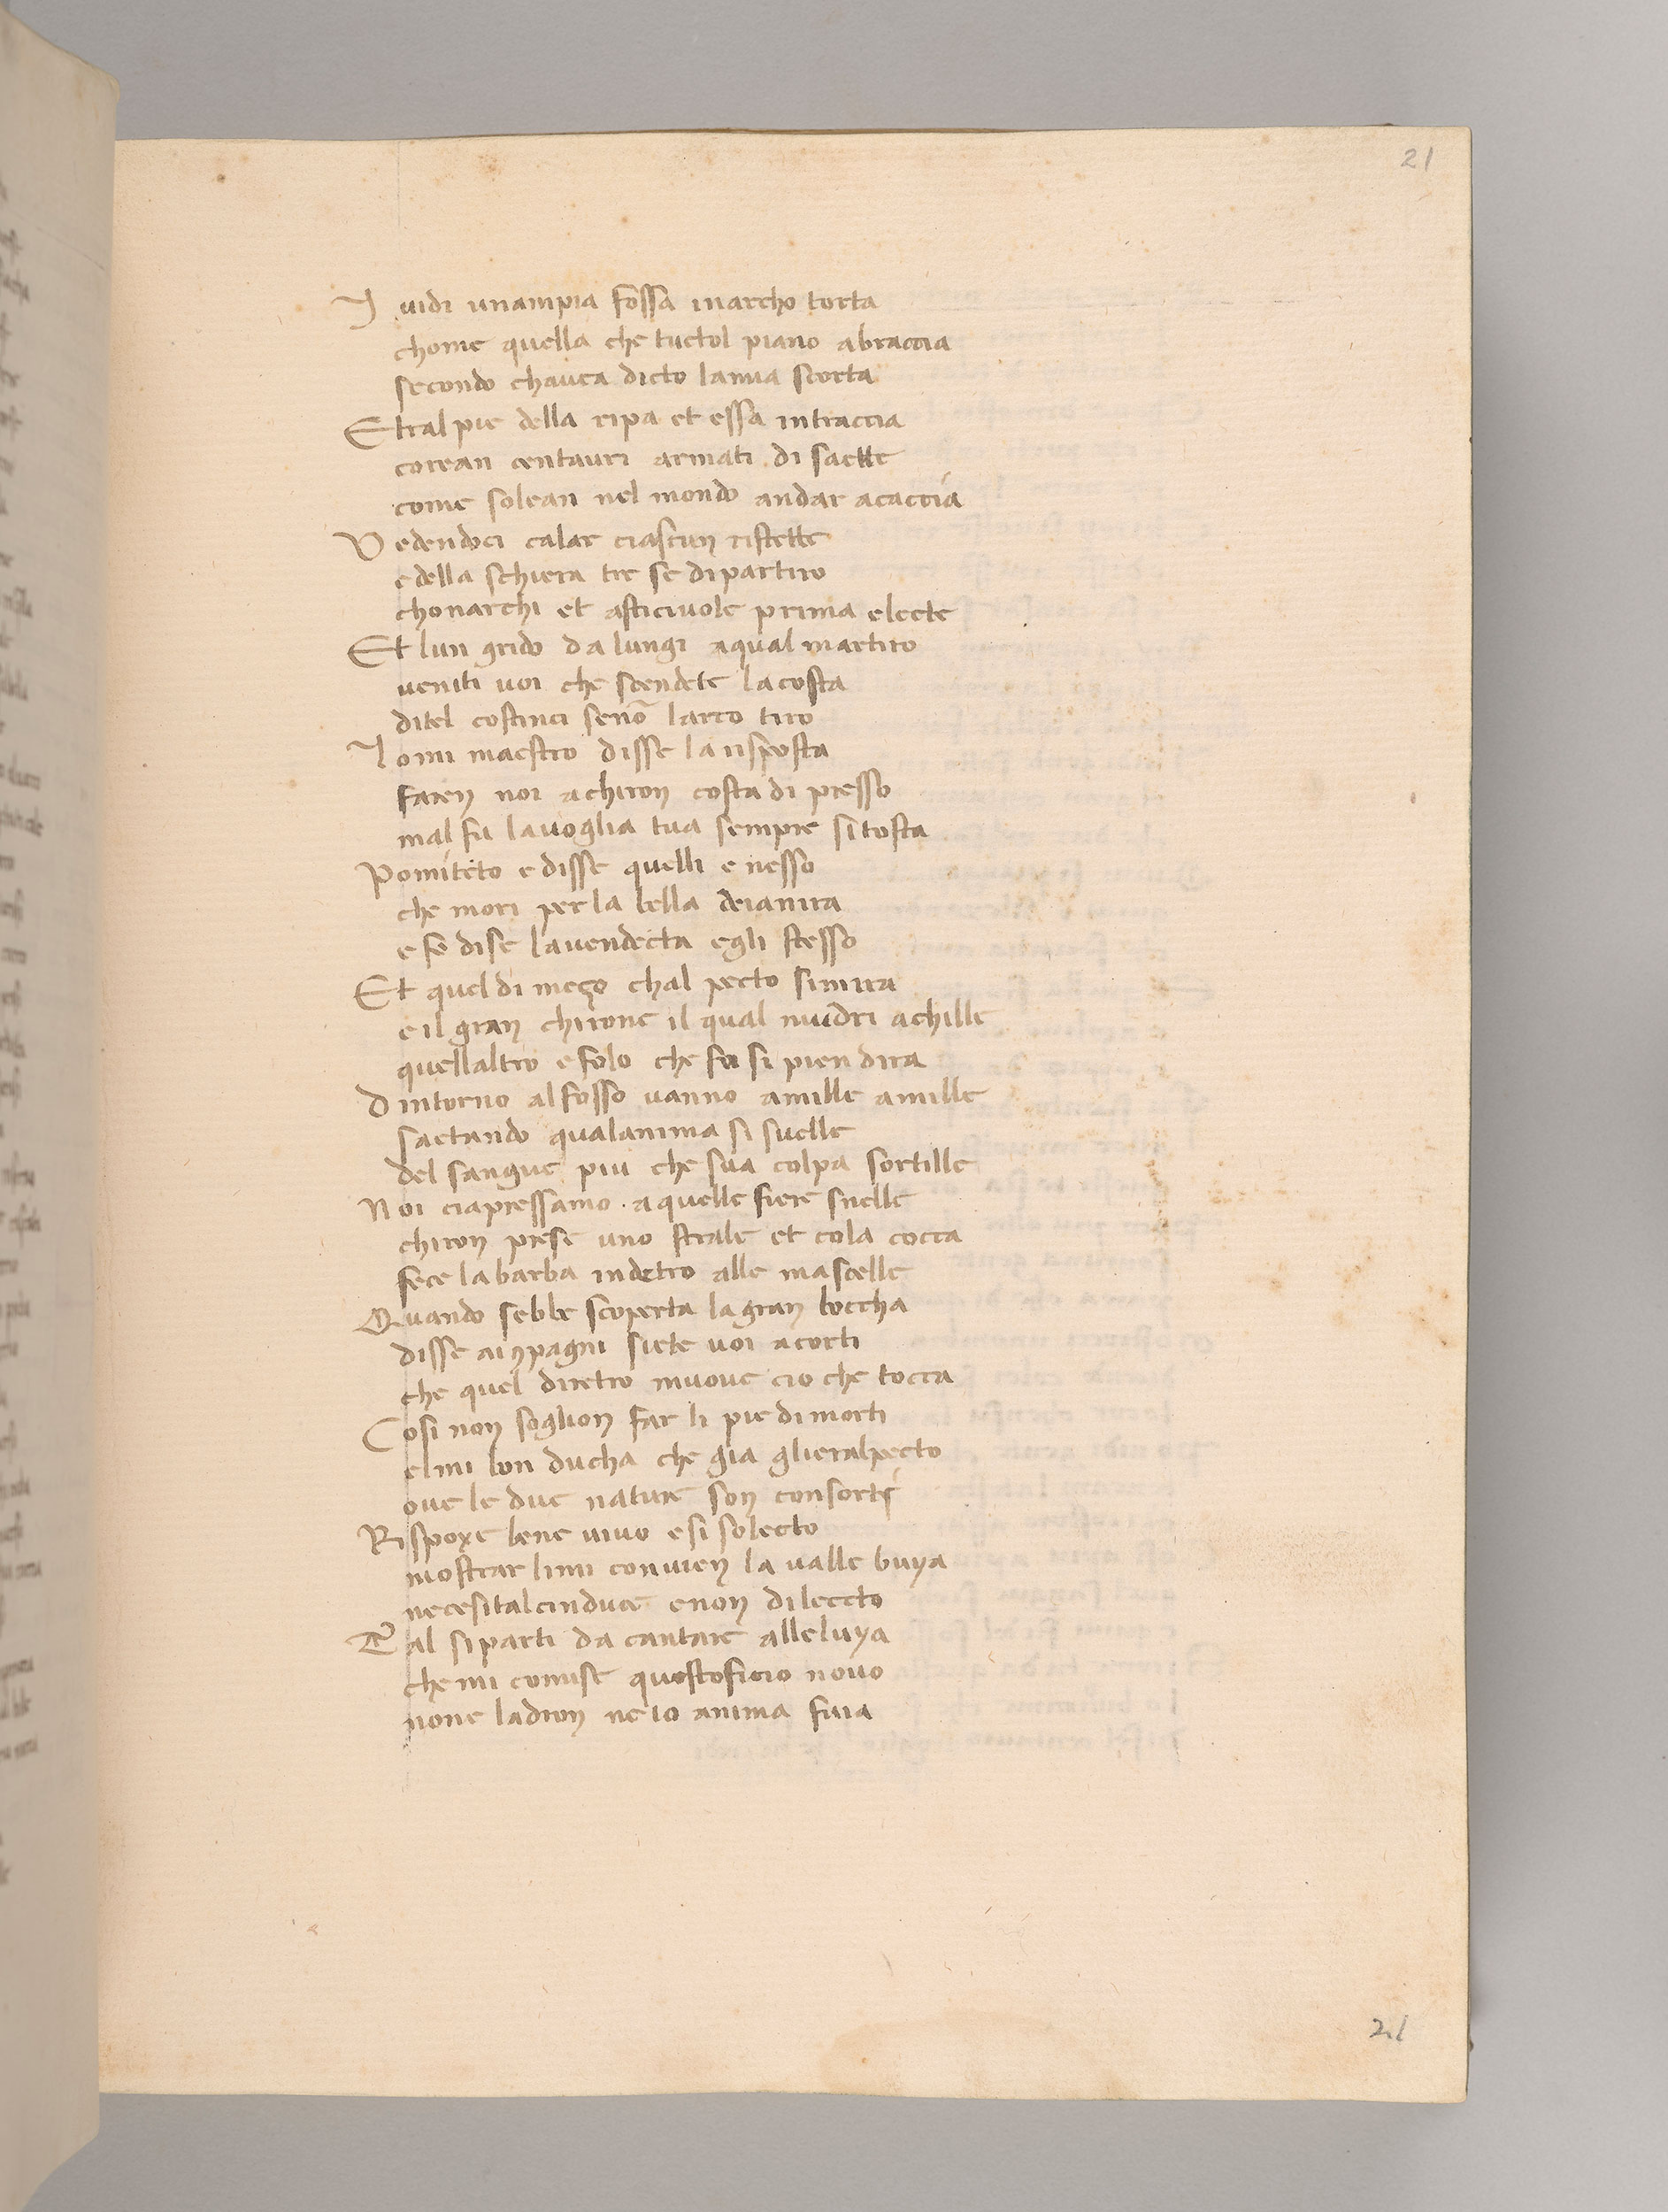 21
I vidi unampia fossa inarcho torta
chome quella che tuctol piano abraccia
secondo chauea dicto lamia scorta
Etral pie della ripa et essa intraccia
corean centauri armati di saette
come solean nel mondo andar acaccia
Vedendoci calar ciascun ristette
e della schiera tre se dipartiro
chonarchi et asticiuole prima electe
Et lun grido da lungi aqual martiro
veniti voi che scendete lacosta
ditel costinci senō larco tiro
Lomi maestro disse la risposta
faren noi achiron costa di presso
mal fu lavoglia tua sempre sitosta
Pomiteto e disse quelli e nesso
che mori per la bella deianira
e fe dise lavendecta egli stesso
Et quel di mezo chal pecto simira
e il gran chirone il qual nudri achille
quellaltro e folo che fu si pien dira
Dintorno alfosso vanno amille amille
saetando qualanima si svelle
del sangue piu che sua colpa sortille
Noi ciapressamo · aquelle fiere snelle
chiron prese uno strale et cola cocca
fece labarba indetro alle mascelle
Quando sebbe scoperta lagran boccha
disse ainpagni siete voi acorti
che quel diretro muove cio che tocca
Cosi non soglion far li pie dimorti
elmi bon ducha che gia glieralpecto
ove le due nature son consorti
Rispoxe bene vivo esi solecto
mostrar limi convien la valle buya
necesitalcinduce enon dileccto
Tal siparti da cantare alleluya
che mi comise questoficio novo
none ladron ne io anima fuia
21